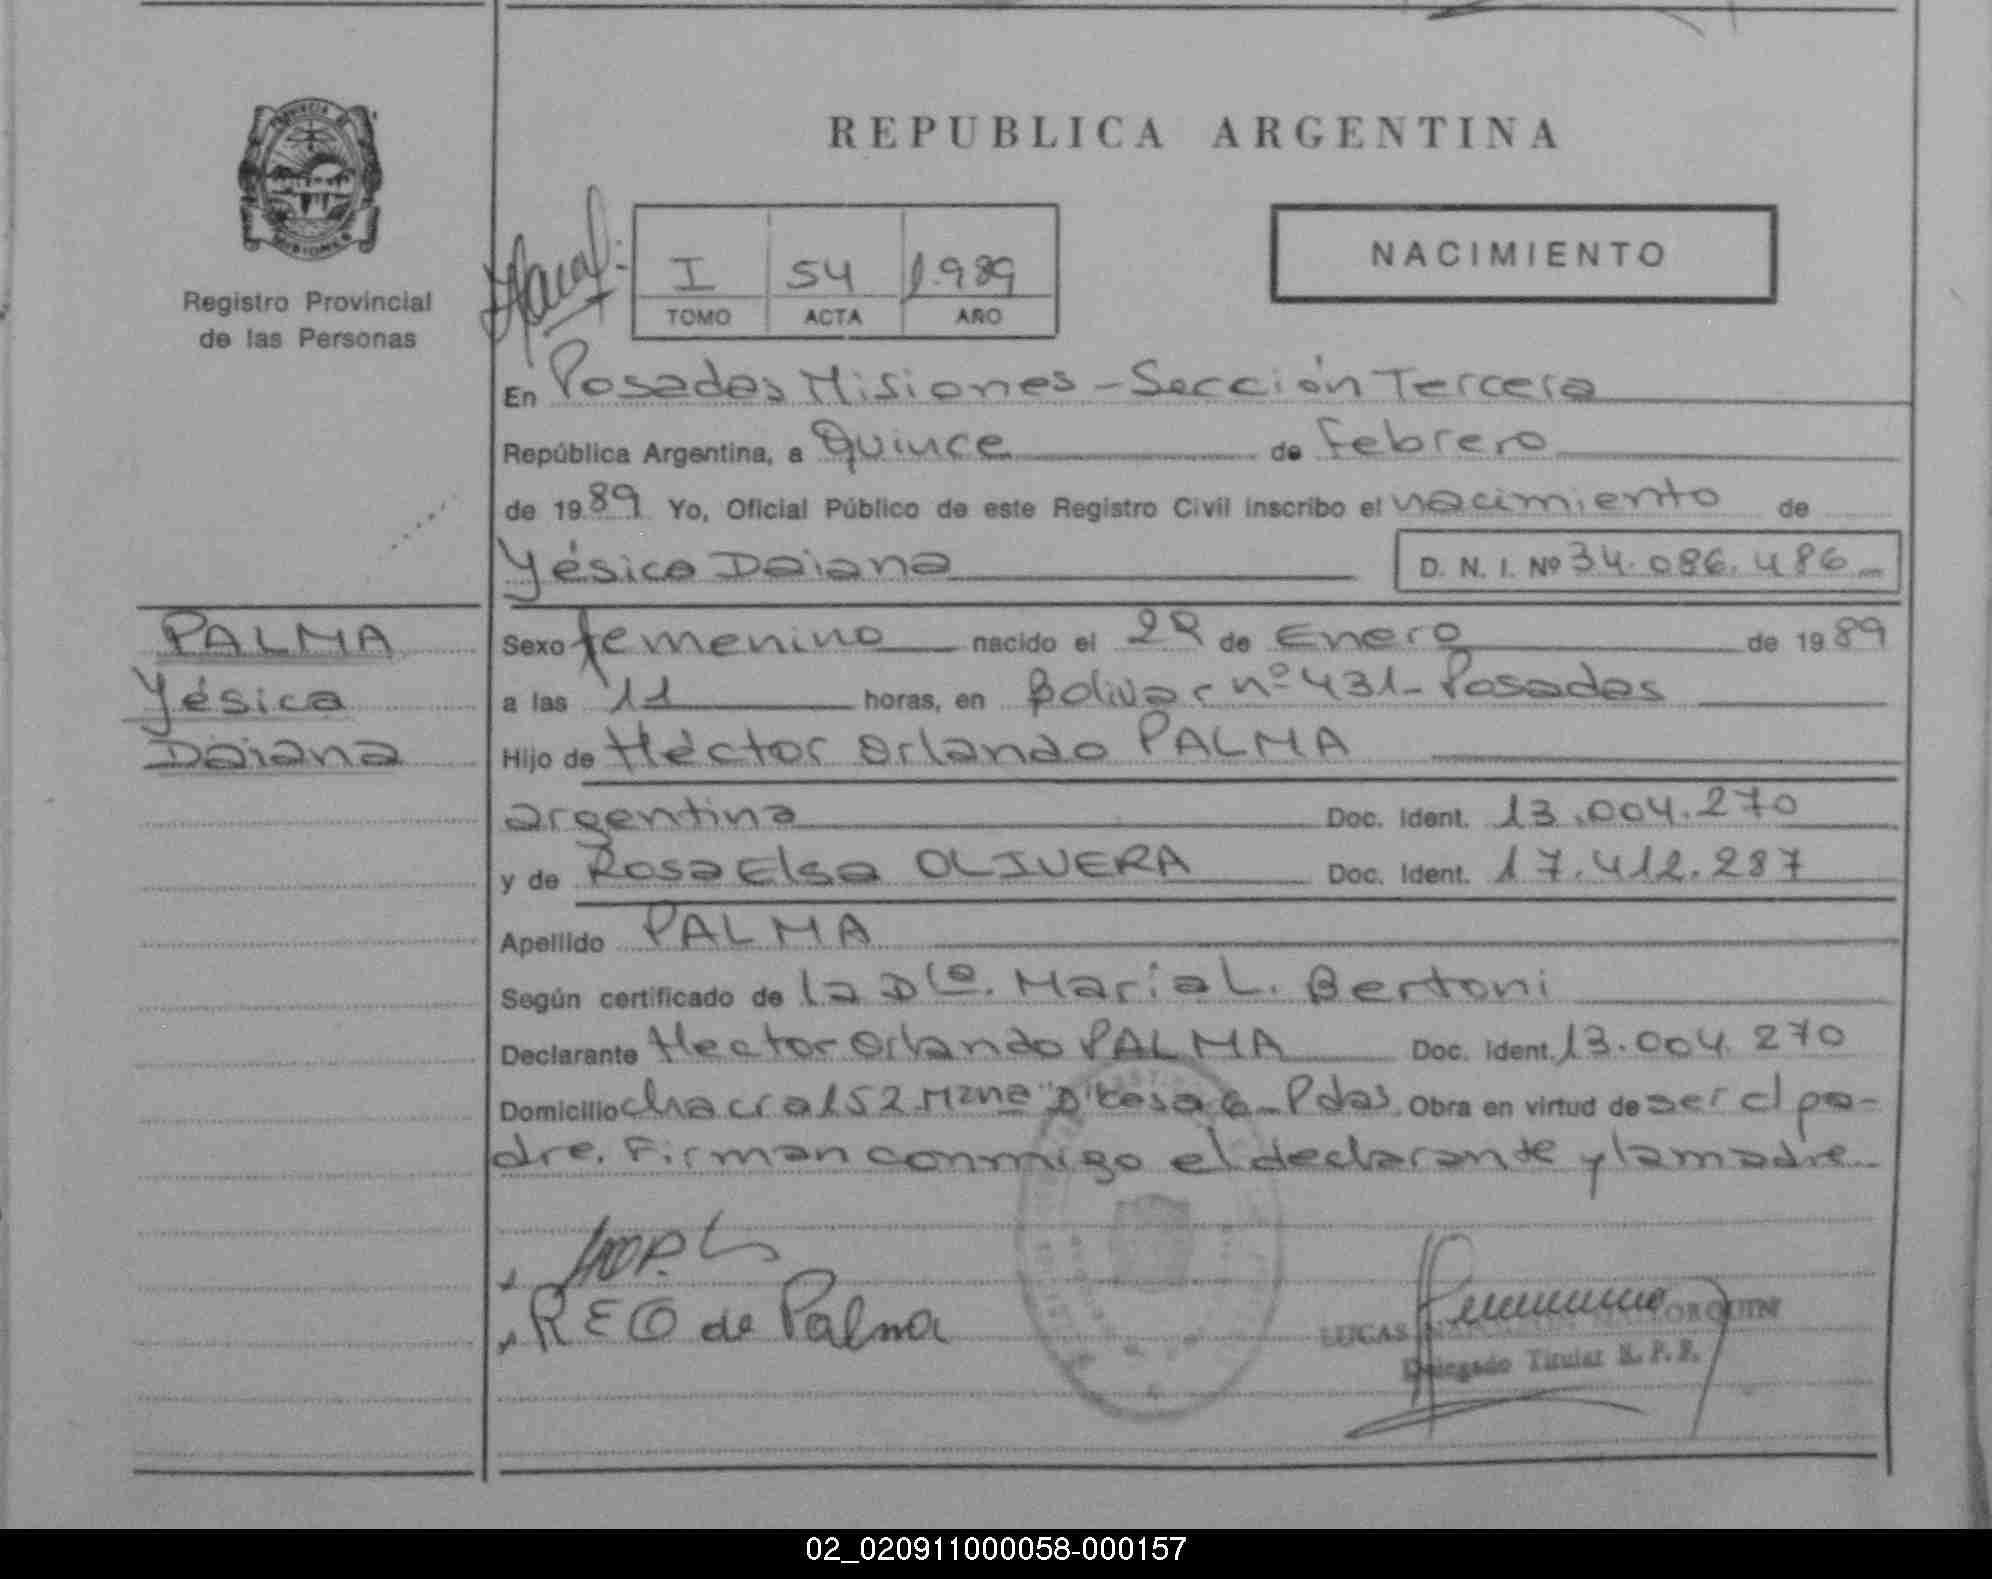 REPUBLICA ARGENTINA
PROVINCIA DE MISIONES
Registro Provincial
de las Personas
I 54 1.989
TOMO ACTA AÑO
NACIMIENTO
En Posadas Misiones - Sección Tercera
República Argentina, a Quince de Febrero
de 1989 Yo, Oficial Público de este Registro Civil inscribo el nacimiento de
Yésica Daiana D. N. I. Nº 34.086.486
PALMA
Yésica
Daiana
Sexo femenino nacido el 28 de Enero de 1989
a las 11 horas, en Bolivar nº 431- Posadas
Hijo de Héctor Orlando PALMA
argentina Doc. Ident. 13.004.270
y de Rosa Elsa OLIVERA Doc. Ident. 17.412.287
Apellido PALMA
Según certificado de la Dra. María L. Bertoni
Declarante Hector Orlando PALMA Doc. Ident. 13.004.270
Domicilio chacra 152 Mzna "D" casa 6 - Pdas. Obra en virtud de ser el pa-
dre. Firman conmigo el declarante y la madre
REO de Palma
LUCAS ORQUIN
Delegado Titular R. P. P.
02_020911000058-000157